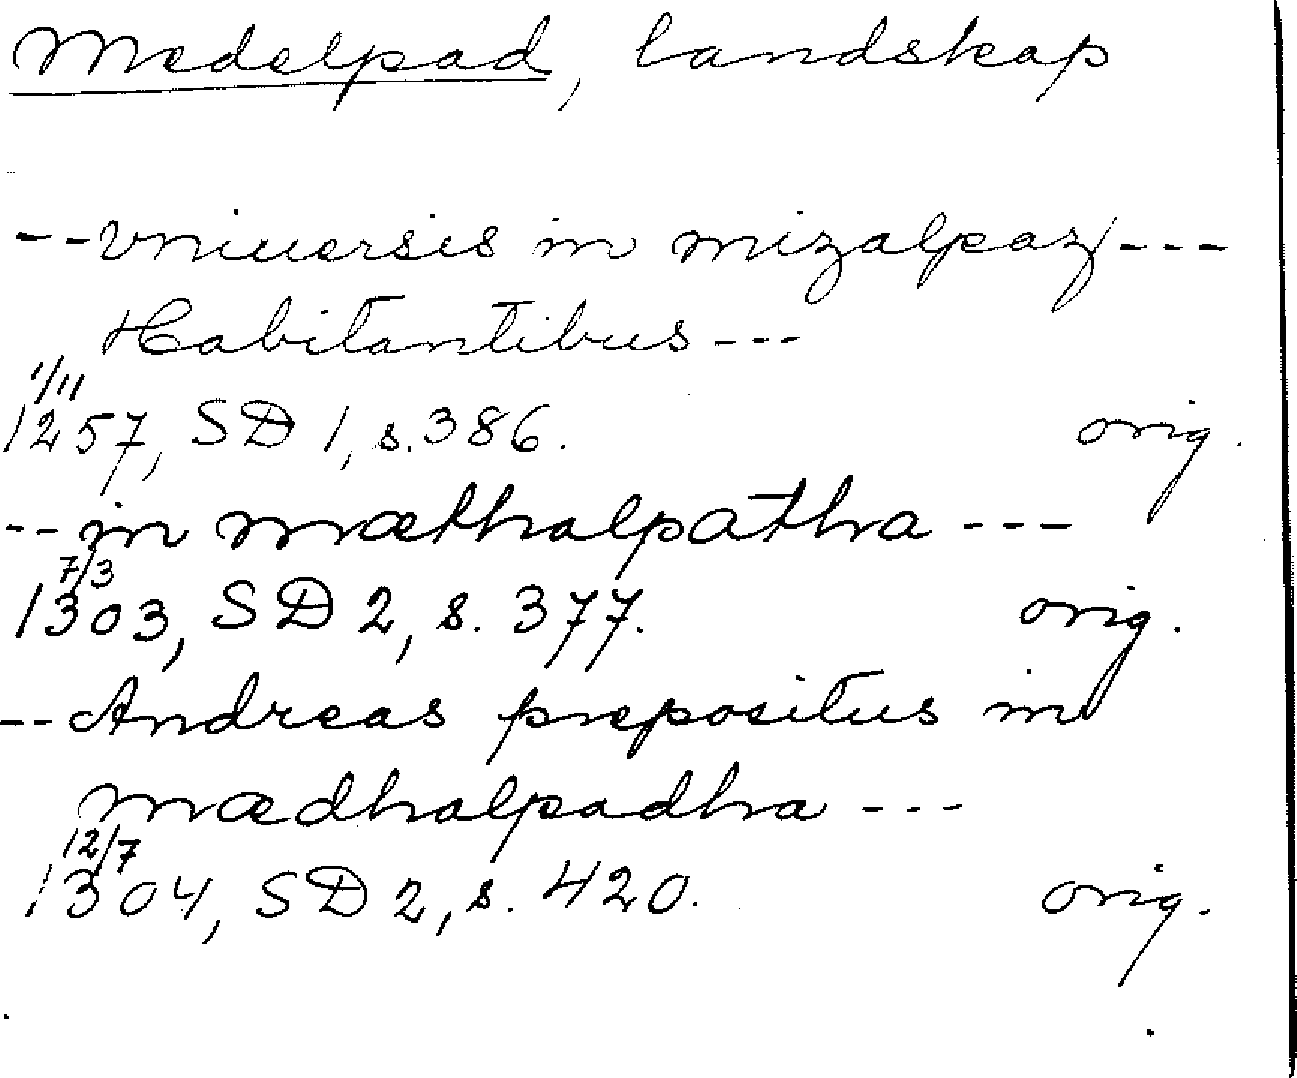 Medelpad, landskap
--vniuersis in mizalpaz---
Habitantibus---
1/11
1257, SD 1, s. 386. orig.
--in mæthalpatha---
7/3
1303, SD 2, s. 377. orig.
--Andreas prepositus in
mædhalpadha---
12/7
1304, SD 2, s. 420. orig.